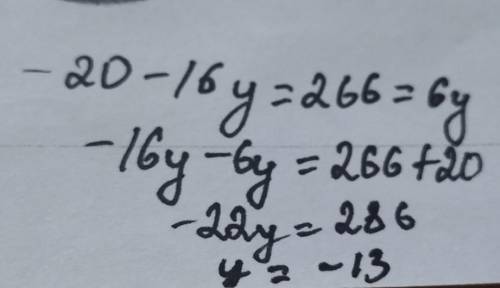 -20-16y=266=6y
-16y-6y=266+20
-22y=286
y=-13